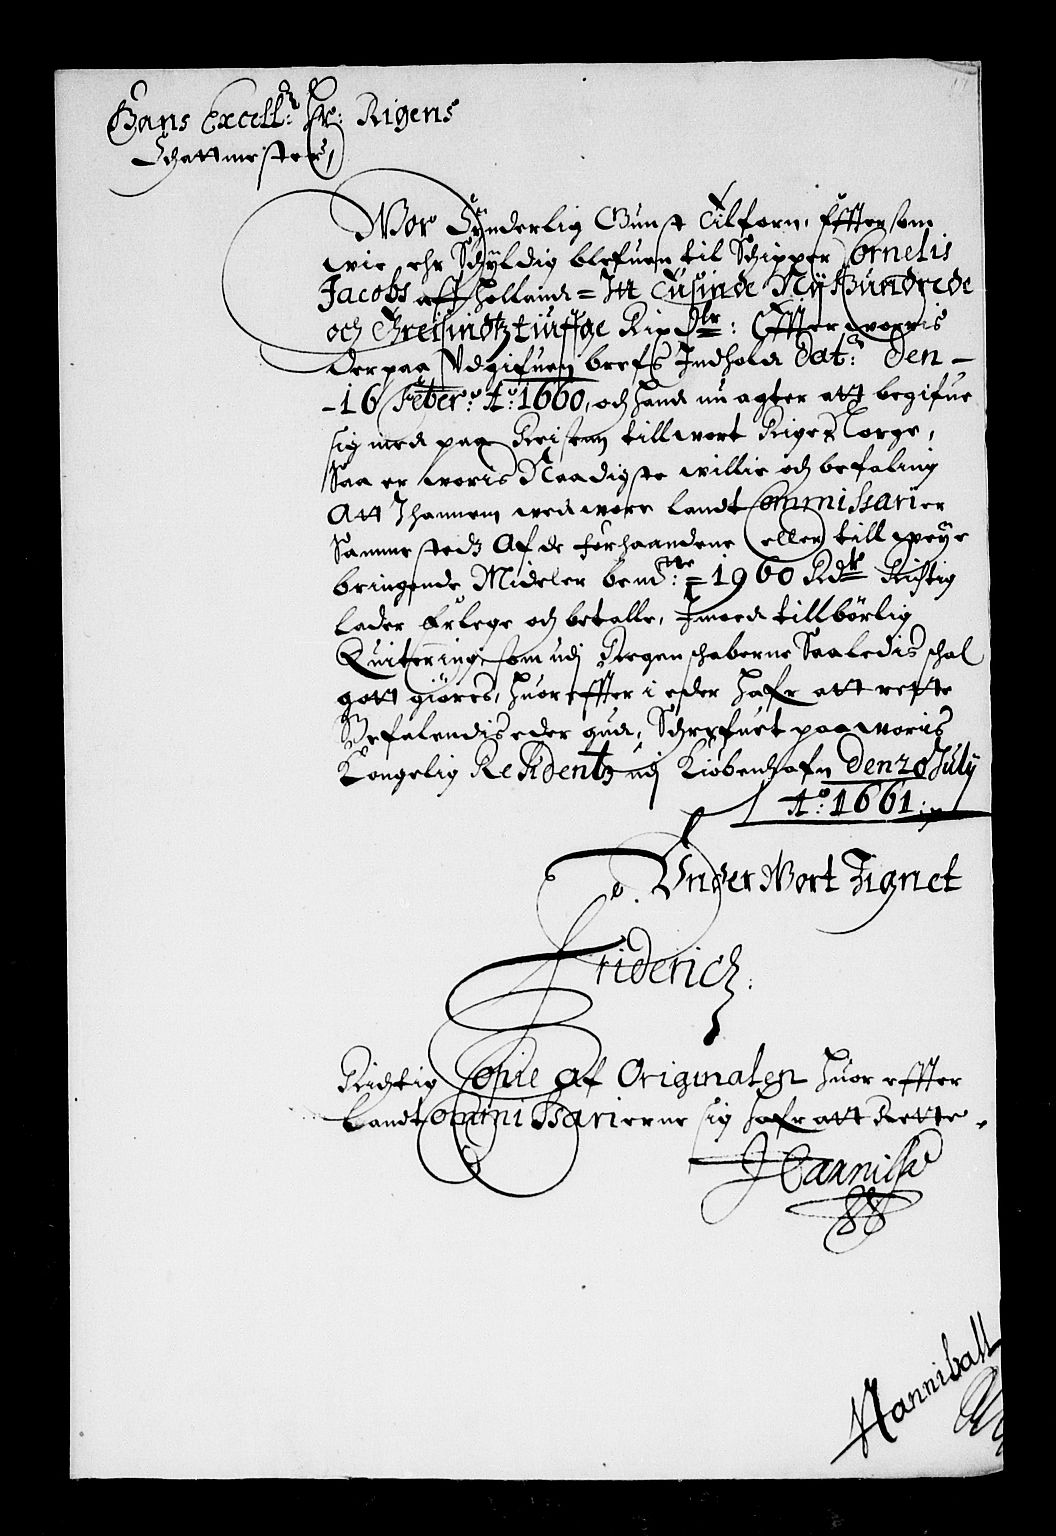 Hans Excell: Hr: Rigens
Schattmester,
Vor Synderlig Gunst Tilforn, Effter som
wie ehr Schyldig blefuen til Schipper Cornelis
Jacobs aff Holland = Itt Tusinde Ny Hundrede
och Treisindtztiuffge Rixdlr: Effter woris
derpaa Udgifuen brefs Indhold Dat: den -
- 16 Feber: Ao: 1660, och hand nu agter att begifue
sig med paa Reisenn till wort Rige Norge,
Saa er woris Naadigste willie och befaling
Att I hannem wed wore Landt Commissarier
Sammestedz Af de forhaandene eller till weye
bringende Mideler bemdte: = 1960 Rdlr Richtig
lader Erlege och betalle, Imod tillbörlig
Quitering, som udj Regenschaberne Saaledis schal
gott giöres, huoreffter i eder hafr att rette
Befalendis eder gud, Schrefuet paa woris
Kongelig Residentz udj Kiöbenhafn den 20 July
Ao: 1661:
Under Vort Zignet
Friderich.
Richtig Copie af Originalen huor effter
Landt Commissarierne sig hafr att Rette.
Hanniball